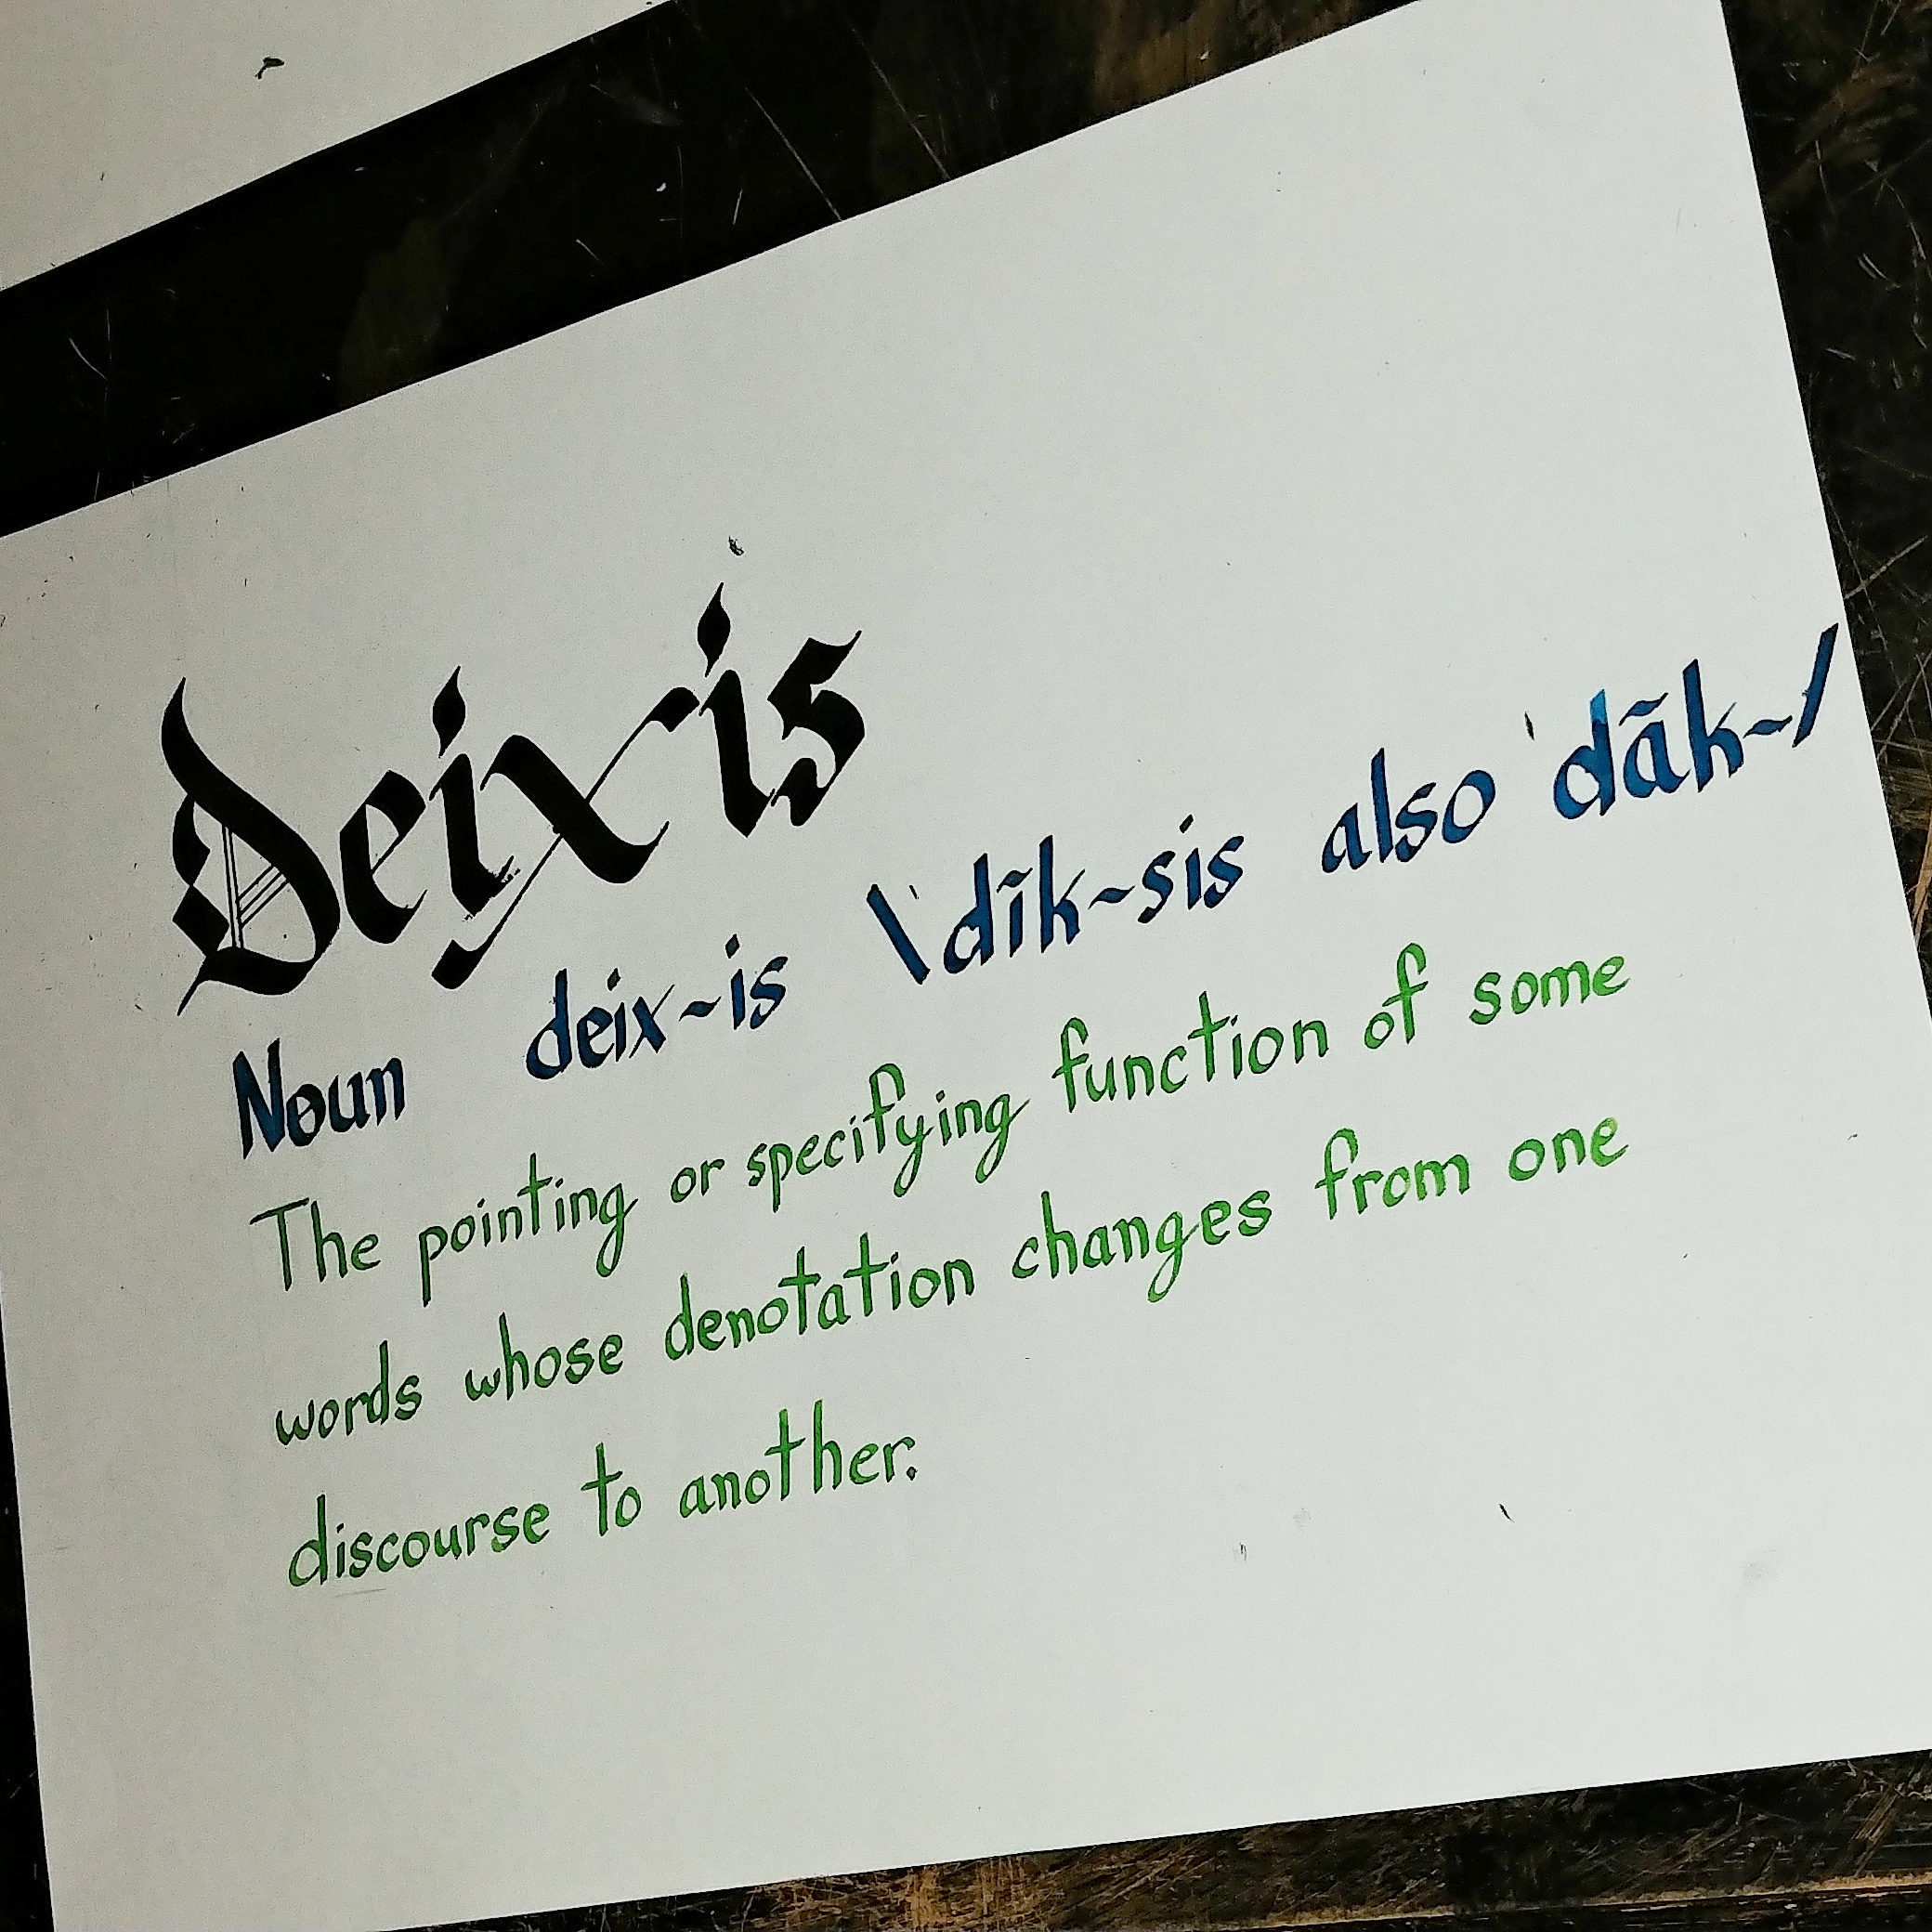 Deixis
Noun deix~is \ˈdīk~sis also ˈdāk~/
The pointing or specifying function of some
words whose denotation changes from one
discourse to another.